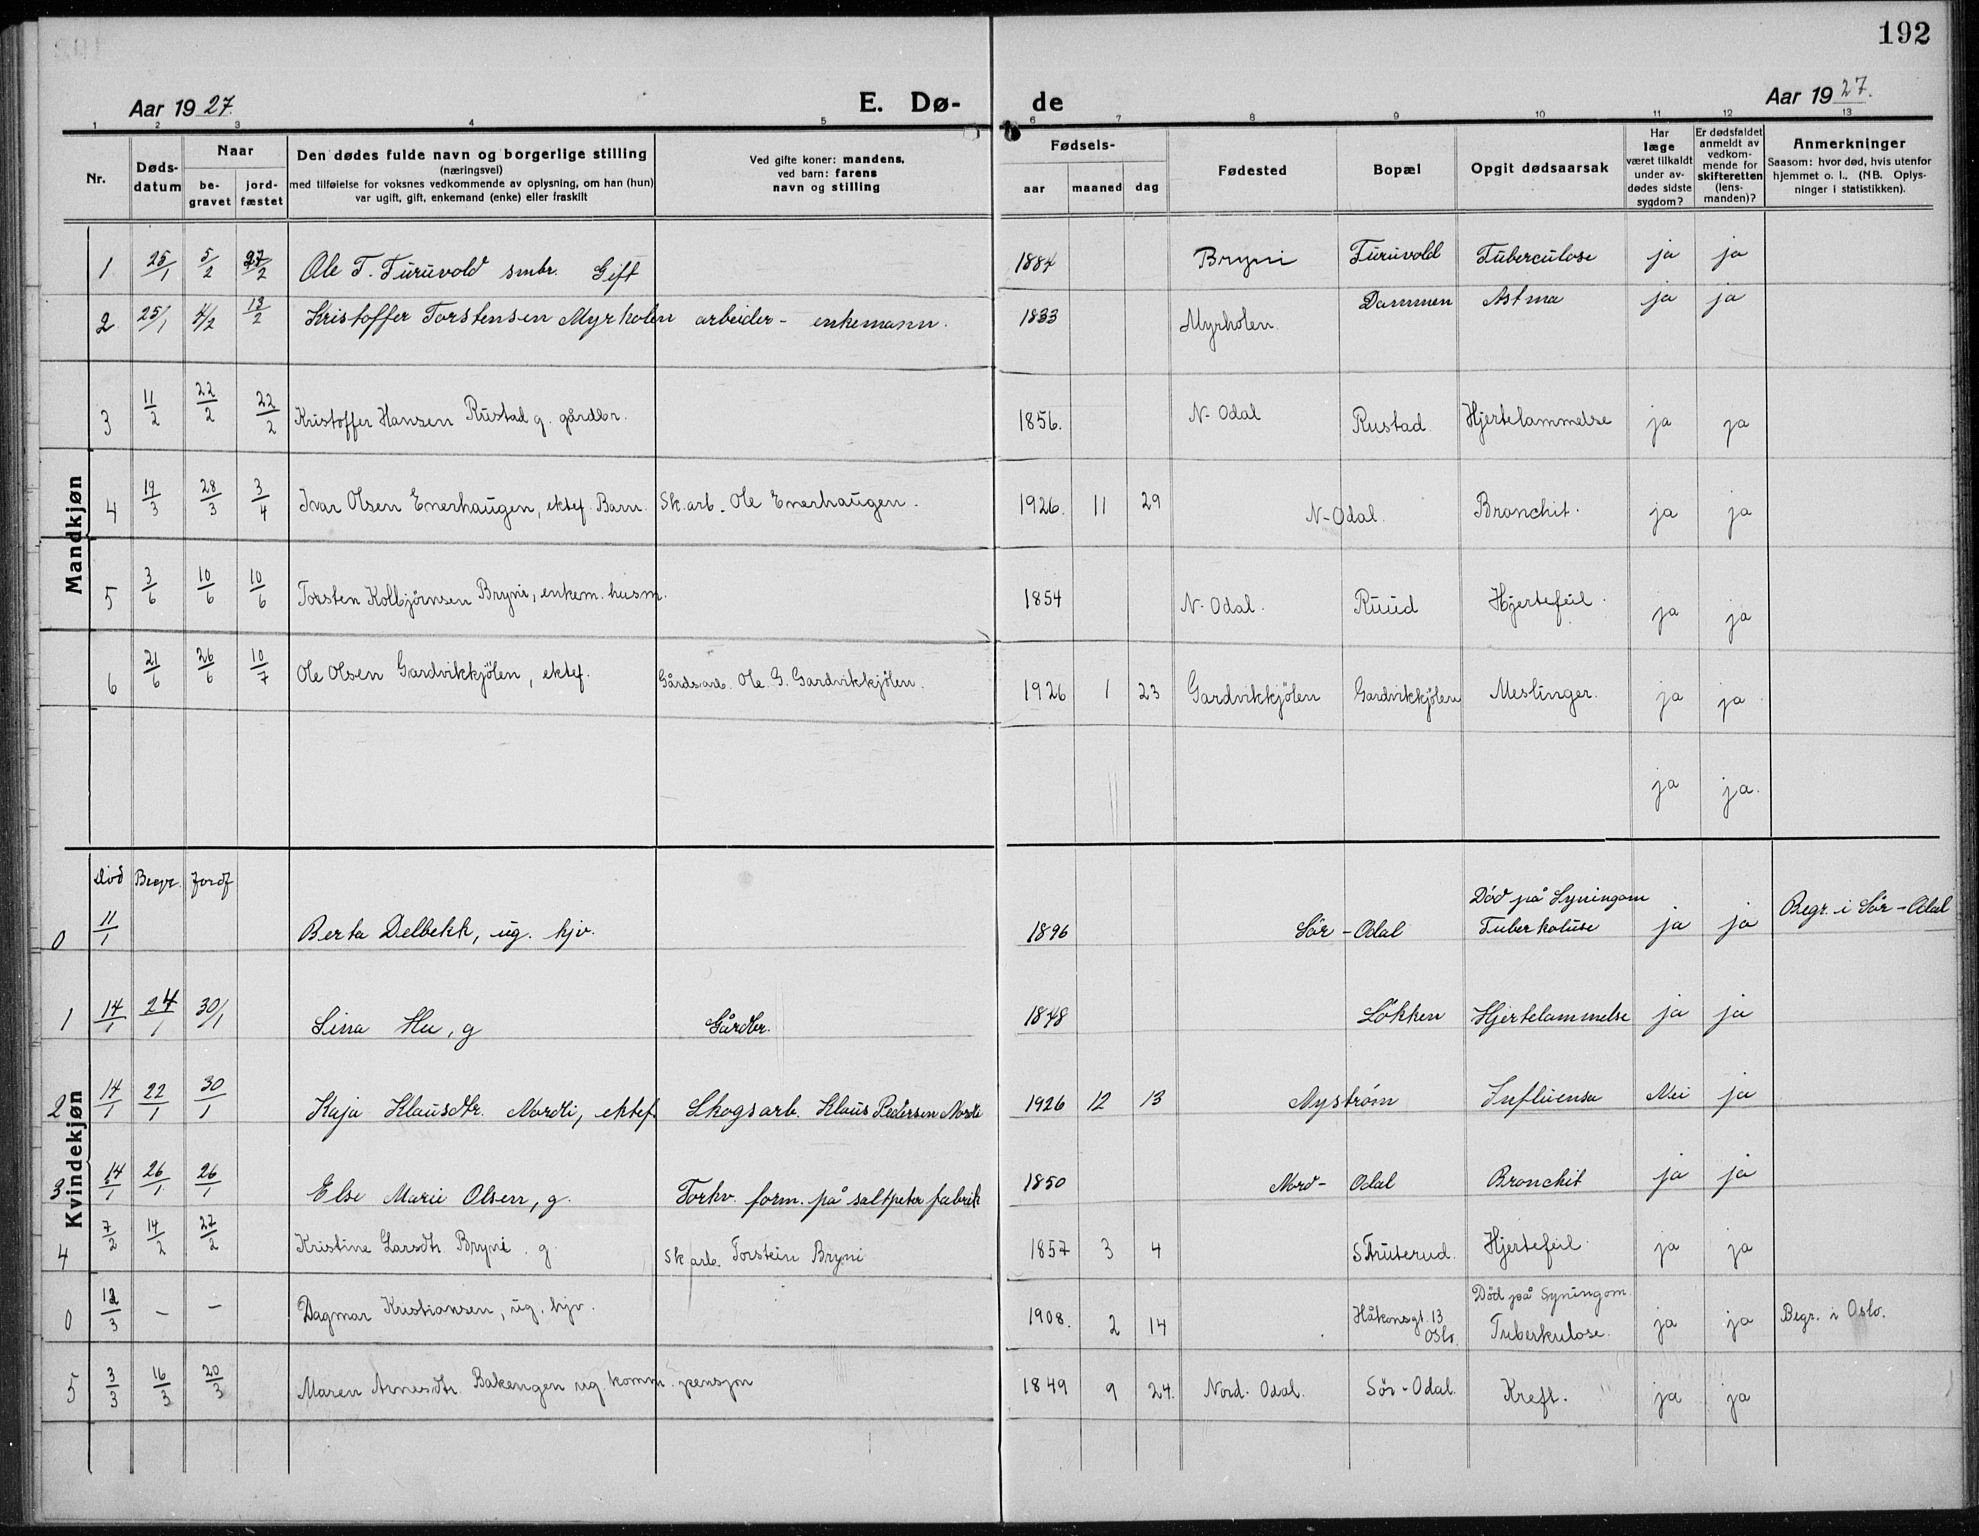 192
Aar 1927. E. Dø- de Aar 1927.
1 2 3 4 5 6 7 8 9 10 11 12 13
Nr. Døds-datum Naar be-gravet jord-fæstet Den dødes fulde navn og borgerlige stilling (næringsvei) med tilføielse for voksnes vedkommende av oplysning, om han (hun) var ugift, gift, enkemand (enke) eller fraskilt Ved gifte koner: mandens, ved barn: farens navn og stilling Fødsels- aar maaned dag Fødested Bopæl Opgit dødsaarsak Har læge været tilkaldt under av-dødes sidste sygdom? Er dødsfaldet anmeldt av vedkom-mende for skifteretten (lens-manden)? Anmerkninger Saasom: hvor død, hvis utenfor hjemmet o. l., (NB. Oplys-ninger i statistikken).
Mandkjøn
1 25/1 5/2 27/2 Ole T. Turuvold smbr. Gift 1884 Bryni Turuvold Tuberculose ja ja
2 25/1 4/2 13/2 Kristoffer Torstensen Myrholen arbeider - enkemann. 1833 Myrholen Dammen Astma ja ja
3 11/2 22/2 22/2 Kristoffer Hansen Rustad g. gårdbr. 1856. N-Odal Rustad. Hjertelammelse ja ja
4 19/3 28/3 3/4 Ivar Olsen Enerhaugen, ektef. Barn. Sk.arb. Ole Enerhaugen. 1926. 11 29 N-Odal. Bronchit. ja ja
5 3/6 10/6 10/6 Torsten Kolbjörnsen Bryni, enkem. husm. 1854 N-Odal. Ruud Hjertefeil. ja ja
6 21/6 26/6 10/7 Ole Olsen Gardvikkjölen, ektef. Gårdsarb. Ole G. Gardvikkjölen. 1926 1 23 Gardvikkjölen Gardvikkjölen Meslinger. ja ja
ja ja.
Kvindekjøn
Död Begr. Jordf
0 11/1 Berta Delbekk, ug. hjv. 1896 Sör-Odal Död på Syningom Tuberkoluse ja ja Begr. i Sör-Odal
1 14/1 24/1 30/1 Sina Hu, g Gårdbr. 1848 Lökken Hjertelammelse ja ja
2 14/1 22/1 30/1 Kaja Klausdtr. Nordli, ektef Skogsarb. Klaus Pedersen Nordli 1926 12 13 Nystrøm Influensa Nei ja
3 14/1 26/1 26/1 Else Marie Olsen, g. Torhv. form. på saltpeter fabrik 1850 Nord-Odal Bronchit ja ja
4 7/2 14/2 27/2 Kristine Larsdtr. Bryni. g. Sk arb. Torstein Bryni 1857 3 4 Struterud. Hjertefeil. ja ja
0 12/3 - - Dagmar Kristiansen, ug. hjv. 1908. 2 14 Håkonsgt. 13 Oslo. Död på Syningom. Tuberkulose. ja ja Begr. i Oslo.
5 3/3 16/3 20/3 Maren Arnesdtr. Bakengen ug. komm. pensjon 1849 9 24. Nord-Odal. Sör-Odal. Kreft. ja ja